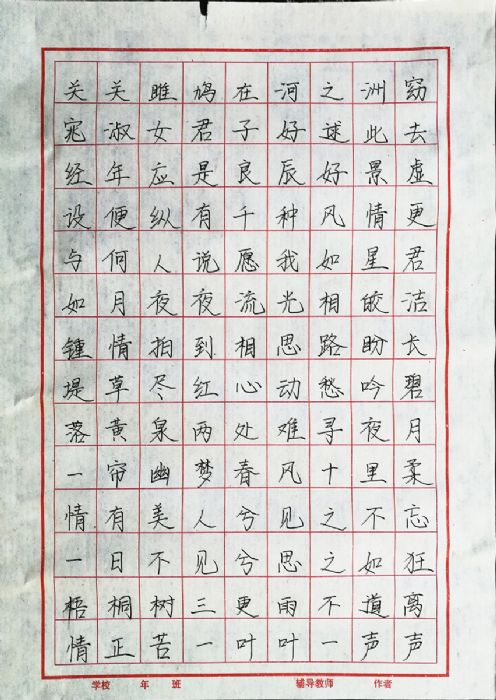 关关雎鸠在河之洲窈
窕淑女君子好逑此去
经年应是良辰好景虚
设便纵有千种风情更
与何人说愿我如星君
如月夜夜流光相皎洁
锺情拍到相思路盼长
堤草尽红心动愁吟碧
落黄泉两处难寻夜月
一帘幽梦春风十里柔
情有美人兮见之不忘
一日不见兮思之如狂
梧桐树三更雨不道离
情正苦一叶叶一声声
学校 年 班 辅导教师 作者